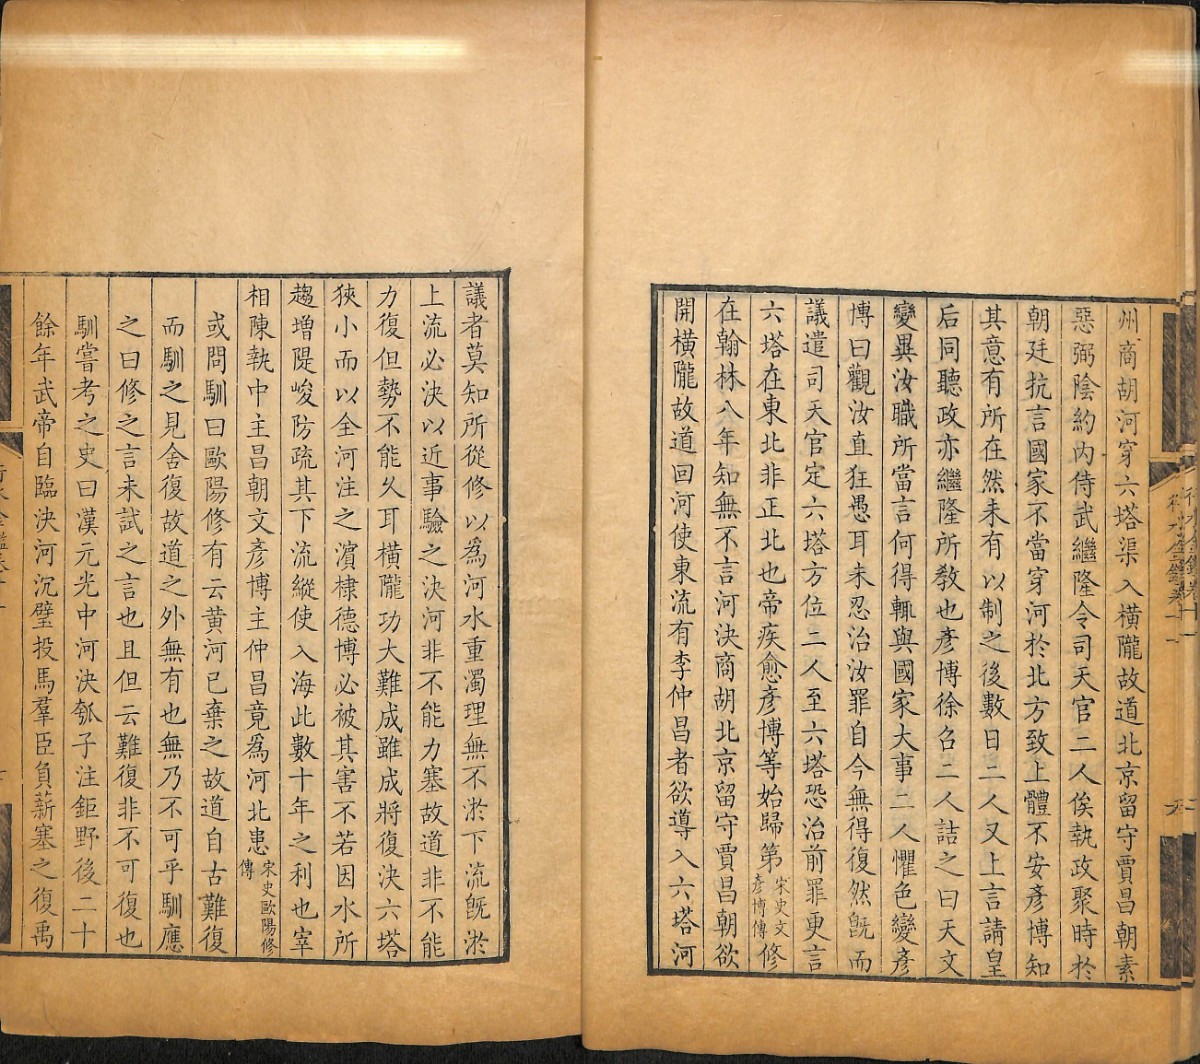 州商胡河穿六塔渠入橫隴故道北京留守賈昌朝素
惡弼陰約內侍武繼隆令司天官二人俟執政聚時於
朝廷抗言國家不當穿河於北方致上體不安彥博知
其意有所在然未有以制之後數日二人又上言請皇
后同聽政亦繼隆所教也彥博徐召二人詰之曰天文
變異汝職所當言何得輒與國家大事二人懼色變彥
博曰觀汝直狂愚耳未忍治汝罪自今無得復然旣而
議遣司天官定六塔方位二人至六塔恐治前罪更言
六塔在東北非正北也帝疾愈彥博等始歸第宋史文彥博傳修
在翰林八年知無不言河決商胡北京留守賈昌朝欲
開橫隴故道回河使東流有李仲昌者欲導入六塔河
議者莫知所從修以爲河水重濁理無不淤下流旣淤
上流必決以近事驗之決河非不能力塞故道非不能
力復但勢不能久耳橫隴功大難成雖成將復決六塔
狹小而以全河注之濱棣德博必被其害不若因水所
趨增隄峻防疏其下流縱使入海此數十年之利也宰
相陳執中主昌朝文彥博主仲昌竟爲河北患宋史歐陽修傳
或問馴曰歐陽修有云黃河已棄之故道自古難復
而馴之見舍復故道之外無有也無乃不可乎馴應
之曰修之言未試之言也且但云難復非不可復也
馴嘗考之史曰漢元光中河決瓠子注鉅野後二十
餘年武帝自臨決河沉璧投馬羣臣負薪塞之復禹